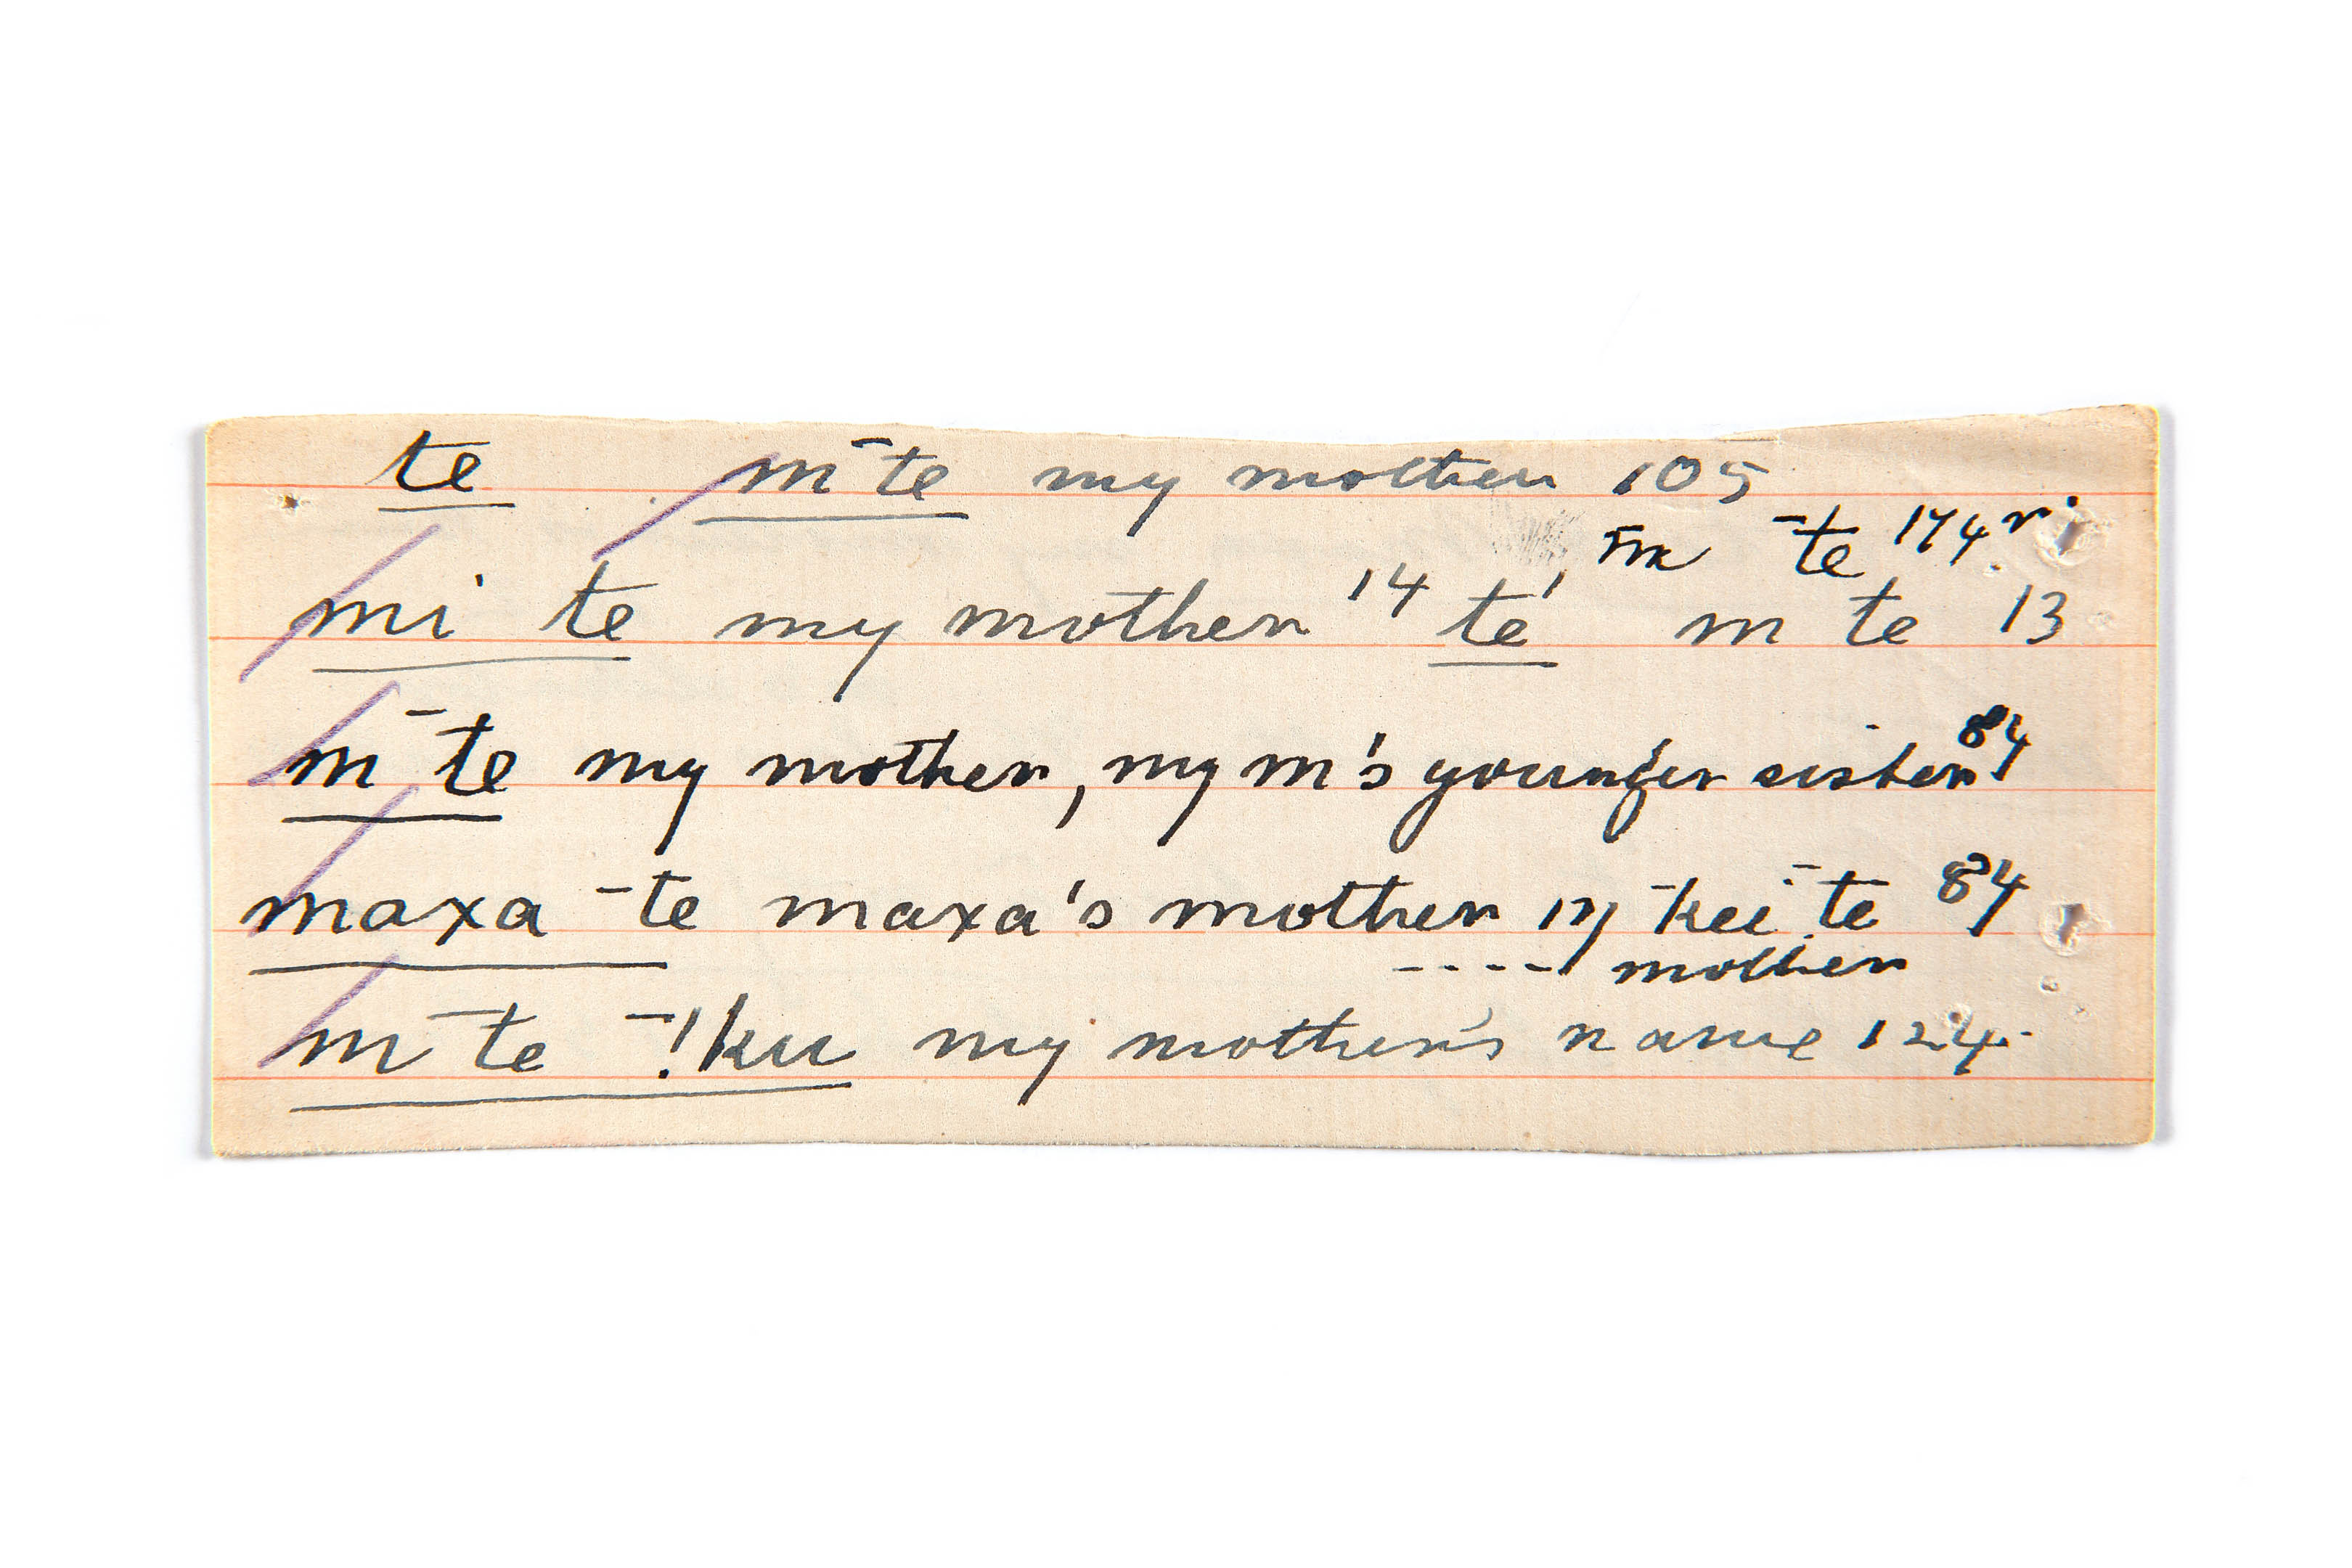 te m ¯te my mother 105
m̄ ¯te 174 r.
mi te my mother 14 te' m te 13
m ¯te my mother, my m's younger sister 84
maxa ¯te maxa's mother 17 ¯kei ¯te 84
---- mother
m ¯te ¯!ku my mother's name 124